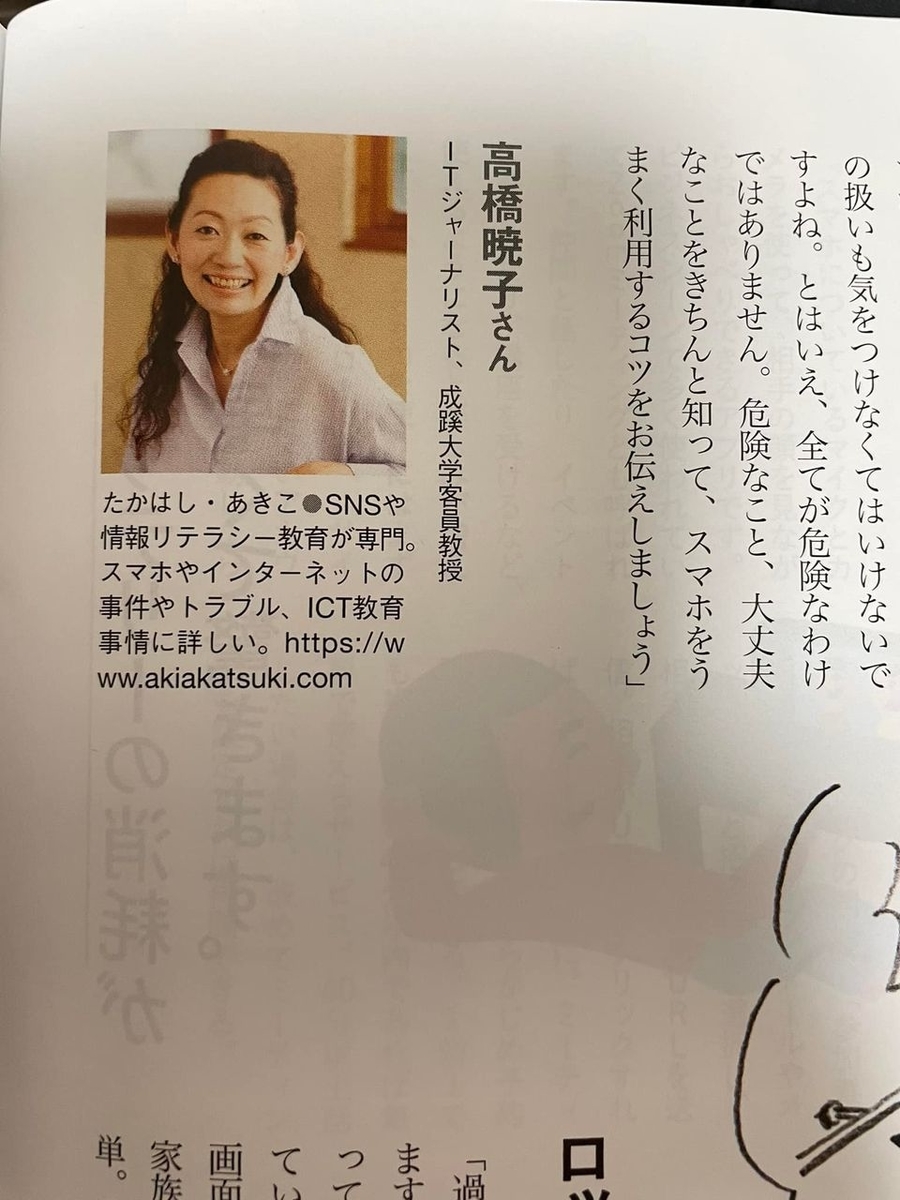 の扱いも気をつけなくてはいけないで
すよね。とはいえ、全てが危険なわけ
ではありません。危険なこと、大丈夫
なことをきちんと知って、スマホをう
まく利用するコツをお伝えしましょう」
高橋暁子さん
ITジャーナリスト、成蹊大学客員教授
たかはし・あきこ●SNSや
情報リテラシー教育が専門。
スマホやインターネットの
事件やトラブル、ICT教育
事情に詳しい。https://w
ww.akiakatsuki.com
「過
ます
って
てい
画面
家族
単。